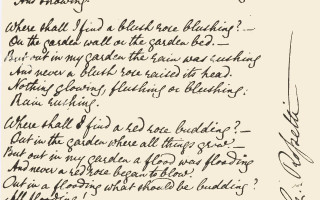 And snowing.
Where shall I find a blush rose blushing?—
On the garden wall or the garden bed.—
But out in my garden the rain was rushing
And never a blush rose raised its head.
Nothing glowing, flushing or blushing:
Rain rushing.
Where shall I find a red rose budding?—
Out in the garden where all things grow.—
But out in my garden a flood was flooding
And never a red rose began to blow.
Out in a flooding what should be budding?
All flooding!
Rossetti